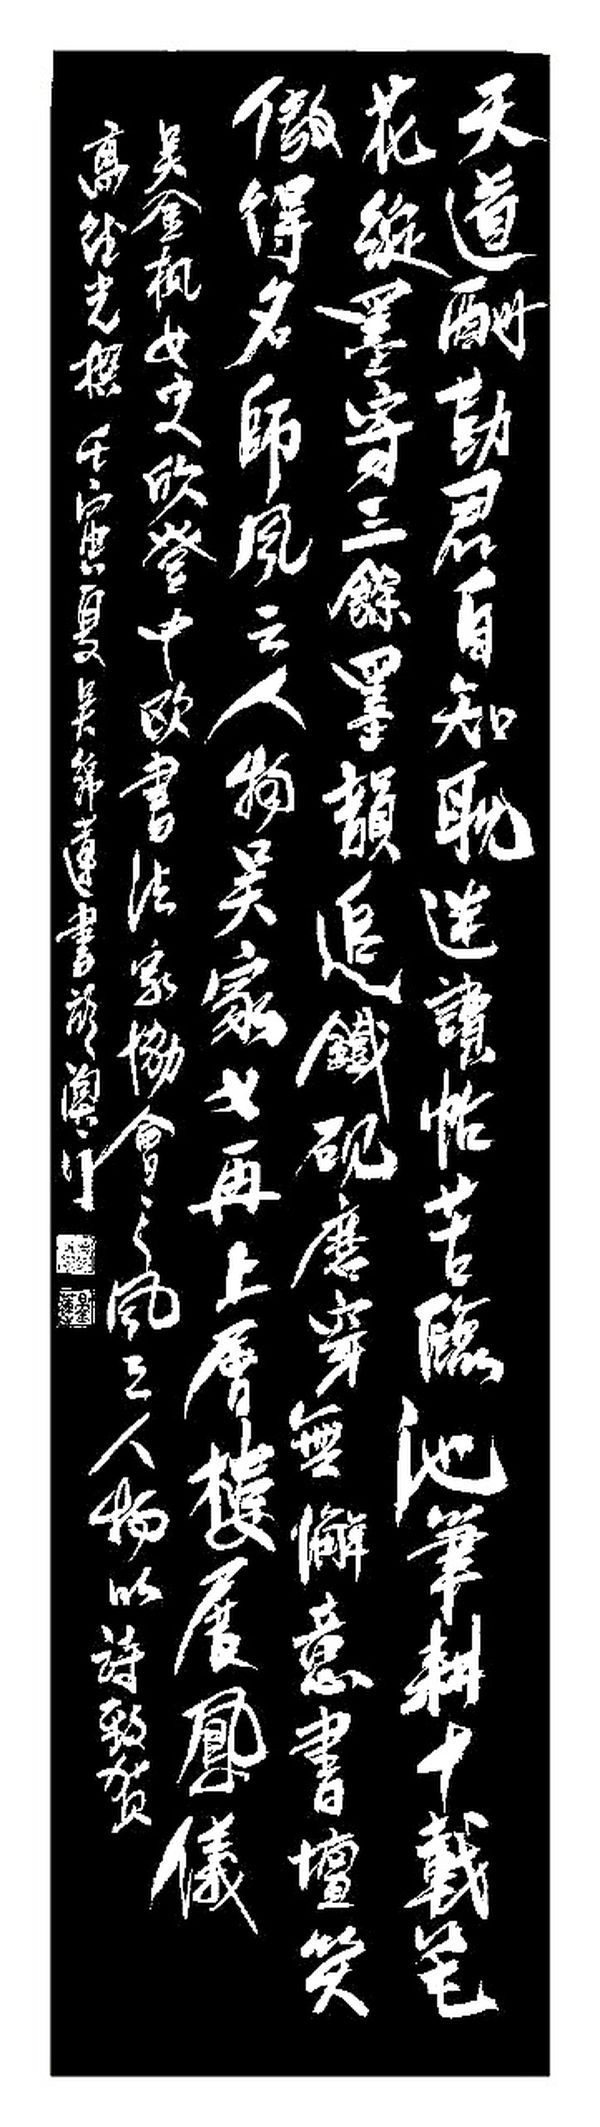 天道酬勤君自知耽迷讀帖苦臨池筆耕十載笔
花綻墨守三餘墨韻追鐵硯磨穿無懈意書壇笑
傲得名師風云人物吴家女再上層樓展鳳儀
吴金枫女史欣登中欧書法家協會之風云人物以詩致贺
高 光撰 壬寅夏吴 蓮書於